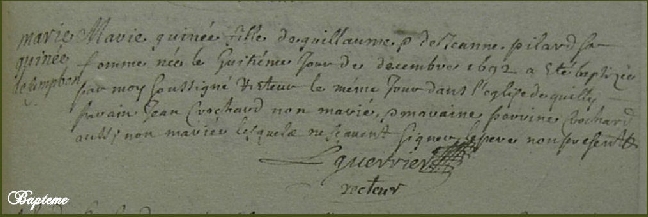 marie Marie quinée fille de guillaume & de Jeanne pilard sa
quinée femme née le huitiéme Jour de decembre 1692 a eté baptizée
par moy soussigné recteur le méme Jour dans l'eglise de quilly
parain Jean Crochard non marié & maraine perrine Crochard
aussi non mariée lesquels ne signent le pere non present
L guerrier
recteur
Bapteme